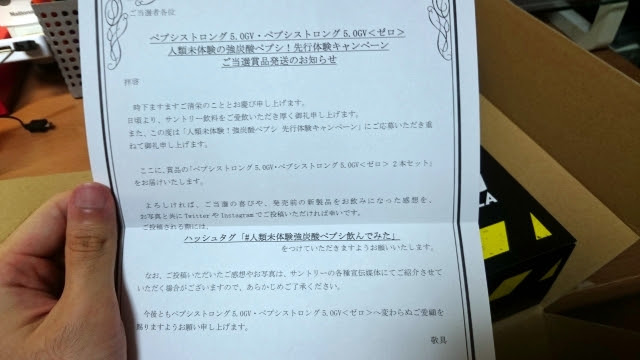 ご当選者各位
ペプシストロング5.0GV・ペプシストロング5.0GV＜ゼロ＞
人類未体験の強炭酸ペプシ！先行体験キャンペーン
ご当選賞品発送のお知らせ
拝啓
時下ますますご清栄のこととお慶び申し上げます。
日頃より、サントリー飲料をご愛飲いただき厚く御礼申し上げます。
また、この度は「人類未体験！強炭酸ペプシ 先行体験キャンペーン」にご応募いただき重
ねて御礼申し上げます。
ここに、賞品の「ペプシストロング5.0GV・ペプシストロング5.0GV＜ゼロ＞ 2本セット」
をお届けいたします。
よろしければ、ご当選の喜びや、発売前の新製品をお飲みになった感想を、
お写真と共にTwitterやInstagramでご投稿いただければ幸いです。
ご投稿される際には、
ハッシュタグ「#人類未体験強炭酸ペプシ飲んでみた」
をつけていただきますようお願いいたします。
なお、ご投稿いただいたご感想やお写真は、サントリーの各種宣伝媒体にてご紹介させて
いただく場合がございますので、あらかじめご了承ください。
今後ともペプシストロング5.0GV・ペプシストロング5.0GV＜ゼロ＞へ変わらぬご愛顧を
賜りますようお願い申し上げます。
敬具